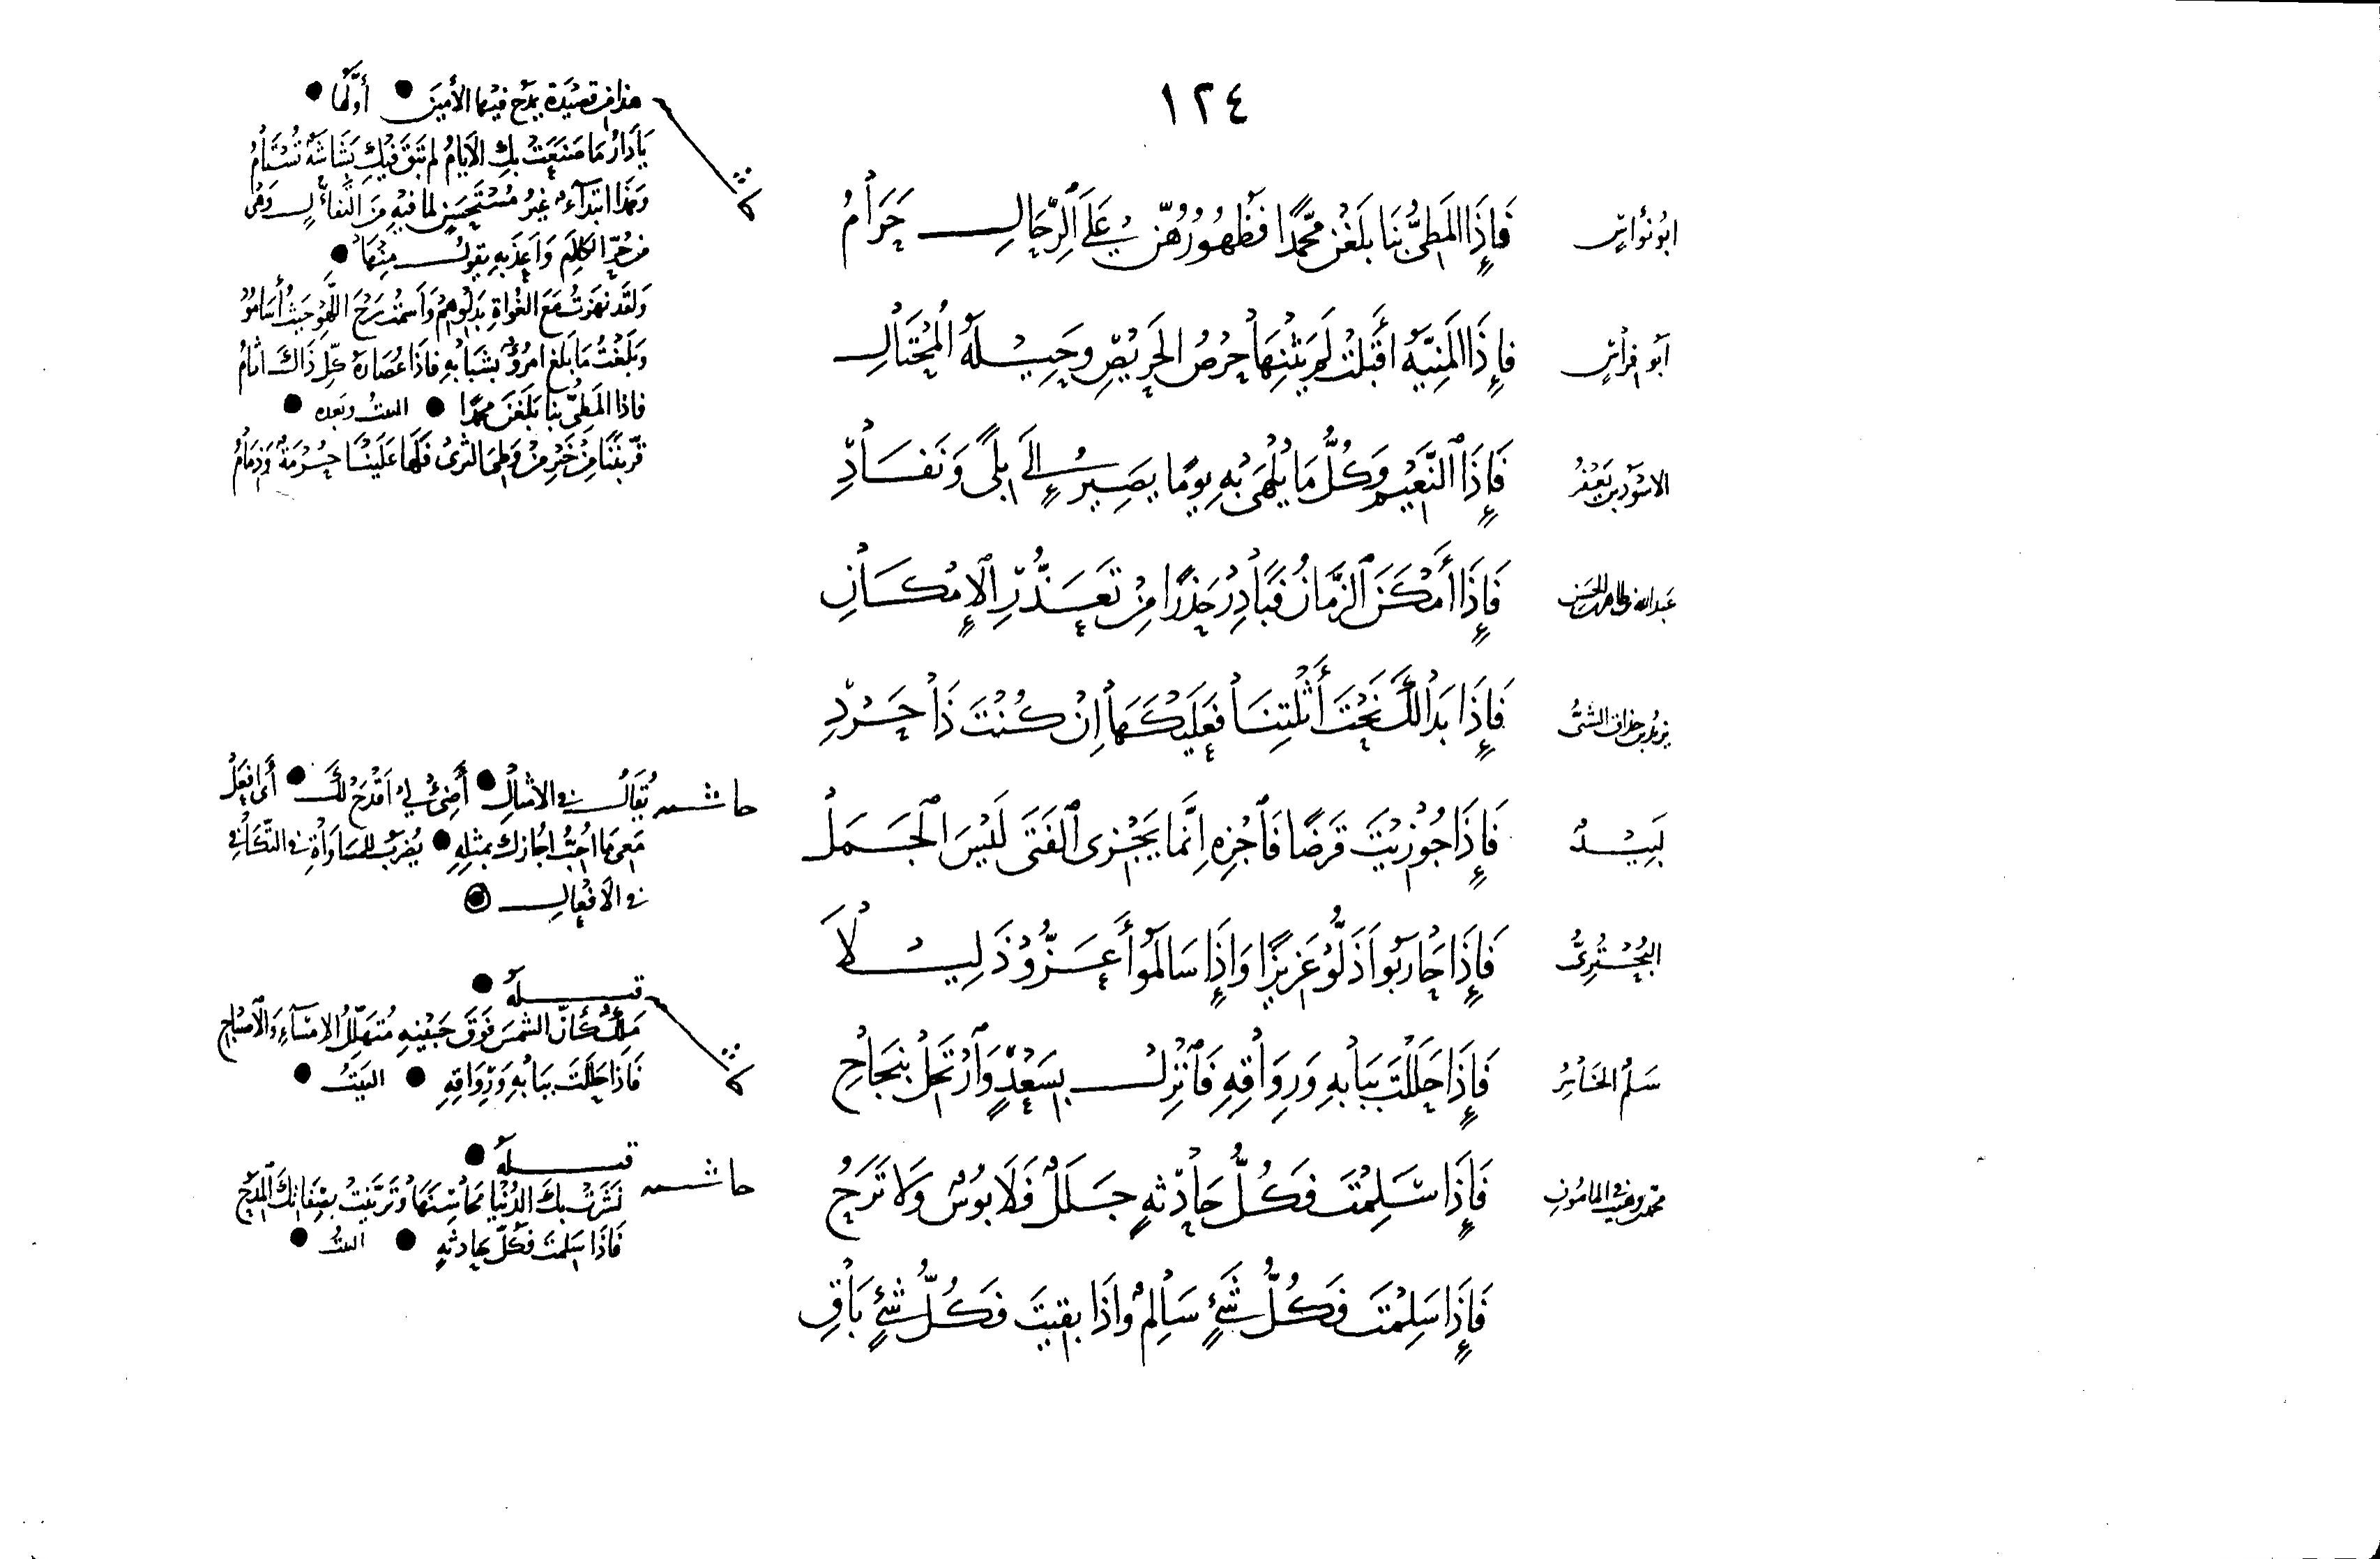 ١٢٤
ابو نواس
فَإِذَا المَطِيُّ بِنَا بَلَغْنَ مُحَمَّدًا فَظُهُورُهُنَّ عَلَى الرِّجَالِ حَرَامُ
أبو فراس
فَإِذَا المَنِيَّةُ أَقْبَلَتْ لَمْ يَثْنِهَا حِرْصُ الحَرِيصِ وَحِيلَةُ المُحْتَالِ
الاسود بن يعفر
فَإِذَا النَّعِيمُ وَكُلُّ مَا يُلْهَى بِهِ يَوْمًا يَصِيرُ إِلَى بِلًى وَنَفَادِ
عبد الله بن طاهر بن الحسين
فَإِذَا أَمْكَنَ الزَّمَانُ فَبَادِرْ حَذَرًا مِنْ تَعَذُّرِ الإِمْكَانِ
يزيد بن حذاق الشني
فَإِذَا بَدَا لَكَ نَحْتَ أَثْلَتِنَا فَعَلَيْكَهَا إِنْ كُنْتَ ذَا حَرْدِ
لبيد
فَإِذَا جُوزِيتَ قَرْضًا فَاجْزِهِ إِنَّمَا يَجْزِي الفَتَى لَيْسَ الجَمَلْ
البحتري
فَإِذَا حَارَبُوا أَذَلُّوا عَزِيزًا وَإِذَا سَالَمُوا أَعَزُّوا ذَلِيلَا
سلم الخاسر
فَإِذَا حَلَلْتَ بِبَابِهِ وَرِوَاقِهِ فَانْزِلْ بِسَعْدٍ وَارْتَحِلْ بِنَجَاحِ
محمد بن وهيب في المامون
فَإِذَا سَلِمْتَ فَكُلُّ حَادِثَةٍ جَلَلٌ فَلَا بُوسٌ وَلَا تَرَحُ
فَإِذَا سَلِمْتَ فَكُلُّ شَيْءٍ سَالِمٌ وَإِذَا بَقِيتَ فَكُلُّ شَيْءٍ بَاقِ
هذا من قصيدة يمدح فيها الأمين • أولها •
يَا دَارُ مَا صَنَعَتْ بِكِ الأَيَّامُ لَمْ تَبْقَ فِيكِ بَشَاشَةٌ تُسْتَامُ
وَهَذَا ابتداءٌ غيرُ مُسْتَحْسَنٍ لما فيه من التفاؤل وهى
من حُرِّ الكلام وأعذبه يقول منها •
وَلَقَدْ نَهَزْتُ مَعَ الغُوَاةِ بِدَلْوِهِمْ وَأَسَمْتُ سَرْحَ اللَّهْوِ حَيْثُ أَسَامُوا
وَبَلَغْتُ مَا بَلَغَ امْرُؤٌ بِشَبَابِهِ فَإِذَا عُصَارَةُ كُلِّ ذَاكَ أَثَامُ
فاذا المطيّ بنا بلغن محمدًا • البيت وبعده •
قَرَّبْنَنَا مِنْ خَيْرِ مَنْ وَطِئَ الثَرَى فَلَهَا عَلَيْنَا حُرْمَةٌ وَذِمَامُ
حاشية يُقَالُ في الأمثال • أَضِئْ لِي أَقْدَحْ لَكَ • أَي افعَلْ
معى ما احبّ اجازك بمثله • يُضرب للمساواة في التكافي
في الأفعال
قبله •
مَلِكٌ كَأَنَّ الشَّمْسَ فَوْقَ جَبِينِهِ مُتَهَلِّلُ الإِمْسَاءِ وَالإِصْبَاحِ
فاذا حللت ببابه ورواقه • البيت •
حاشية قبله •
نَشَرَتْ بِكَ الدُّنْيَا مَحَاسِنَهَا وَتَزَيَّنَتْ بِصِفَاتِكَ المِدَحُ
فاذا سلمت فكلّ حادثة • البيت •